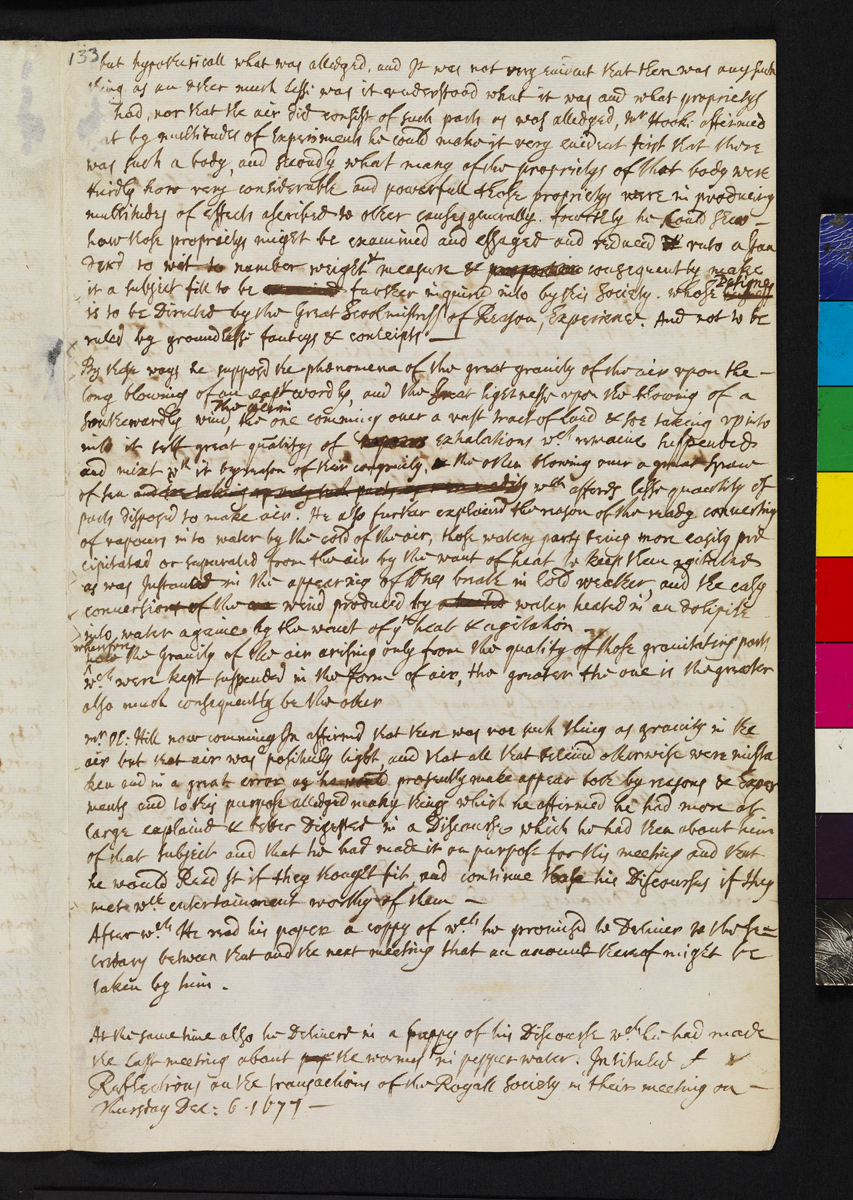 133
but hypotheticall what was alledged, and It was not very evident that there was any such
thing as an ether much lesse was it understood what it was and what proprietys
had, nor that the air did consist of such parts as was alledged, Mr Hook: affirmed
at by multitudes of Experiments he could make it very evident first that there
was such a body, and secondly what many of the proprietys of that body were
thirdly how very considerable and powerfull those proprietys were in producing
multitudes of effects ascribed to other causes generally. fourthly he could shew
how those proprietys might be examined and and reduced unto a stan
derd to number weight measure & consequently make
it a subject fitt to be further inquired into by this Society. whose Designes
is to be Directed by the Great Scoolmistriss of Reason, Experience. And not to be
ruled by groundlesse fantcys & conceipts. —
By these ways he supposd the phænomena of the great gravity of the air upon the
long blowing of an eastwardly, and the great lightnesse upon the blowing of a
Southewardly wind, the one comming over a vast tract of land & soe taking up into
into it self great quantitys of exhalations wch remaine suspended
and mixt wth it by reason of their congruity, the other blowing over a great space
of sea and wch affords lesse quantity of
parts disposed to make air. He also further explaind the reason of the ready converting
of vapours into water by the cold of the air, those watery parts being more easily pre
cipitated or separated from the air by the want of heat to keep them agitated
as was Instanced in the appearing of the breath in cold weather, and the easy
conversion of the wind produced by water heated in an æolipile
into water againe by the want of yt heat & agitation —
wherefore the Gravity of the air arising only from the quantity of those gravitating parts
wch were kept suspended in the form of air, the greater the one is the greater
also must consequently be the other
Mr Ol: Hill now comming In affirmd that there was noe such thing as gravity in the
air but that air was positively light, and that all that beleivd otherwise were mista
ken and in a great error as he would presently make appear both by reasons & Exper
ments and to this purpose alledged many things which he affirmed he had more at
large explaind & better Digested in a Discourse which he had then about him
of that subject and that he had made it on purpose for this meeting and that
he would Read It if they thought fit, and continue his Discourses if they
met wth entertainment worthy of them —
After wch He read his paper a coppy of wch he promisd to Deliver to the Se=
cretary between that and the next meeting that an account thereof might be
taken by him.
At the same time also he Deliverd in a coppy of his Discourse wch he had made
the last meeting about the wormes in pepper water: Intituled
Reflections on the transactions of the Royall Society in their meeting on —
Thursday Dec: 6. 1677 —